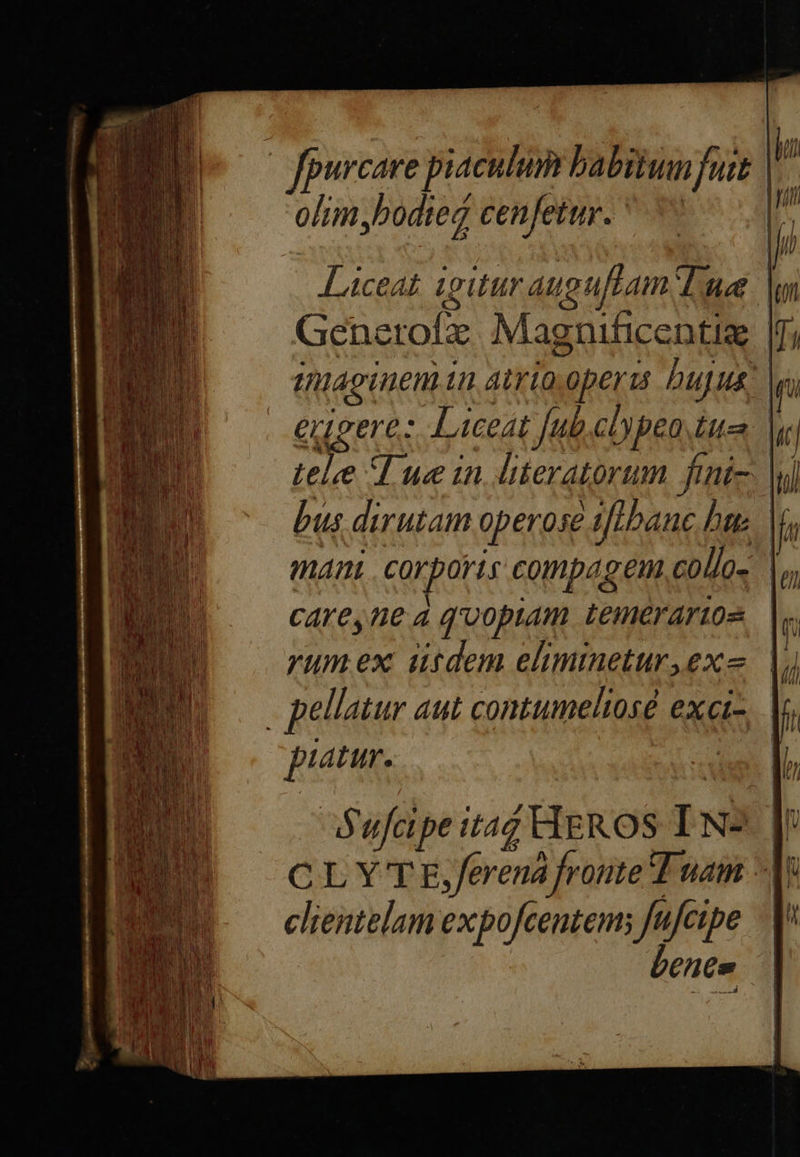 ſpurcare piaculum habitum fuit
olim, hodieq́ cenſetur.
Liceat igitur auguſtam Tuæ
Generoſæ Magnificentiæ
imaginem in atrio operis hujus
erigere: Liceat ſub clypeo tu=
telæ Tuæ in literatorum fini-
bus dirutam operosè iſthanc hu=
mani corporis compagem collo-
care, ne à qvopiam temerario=
rum ex iisdem eliminetur, ex=
pellatur aut contumeliosè exci-
piatur.
Suſcipe itaq́ HEROS IN-
CLYTE, ſerenâ fronte Tuam
clientelam expoſcentem; ſuſcipe
bene=